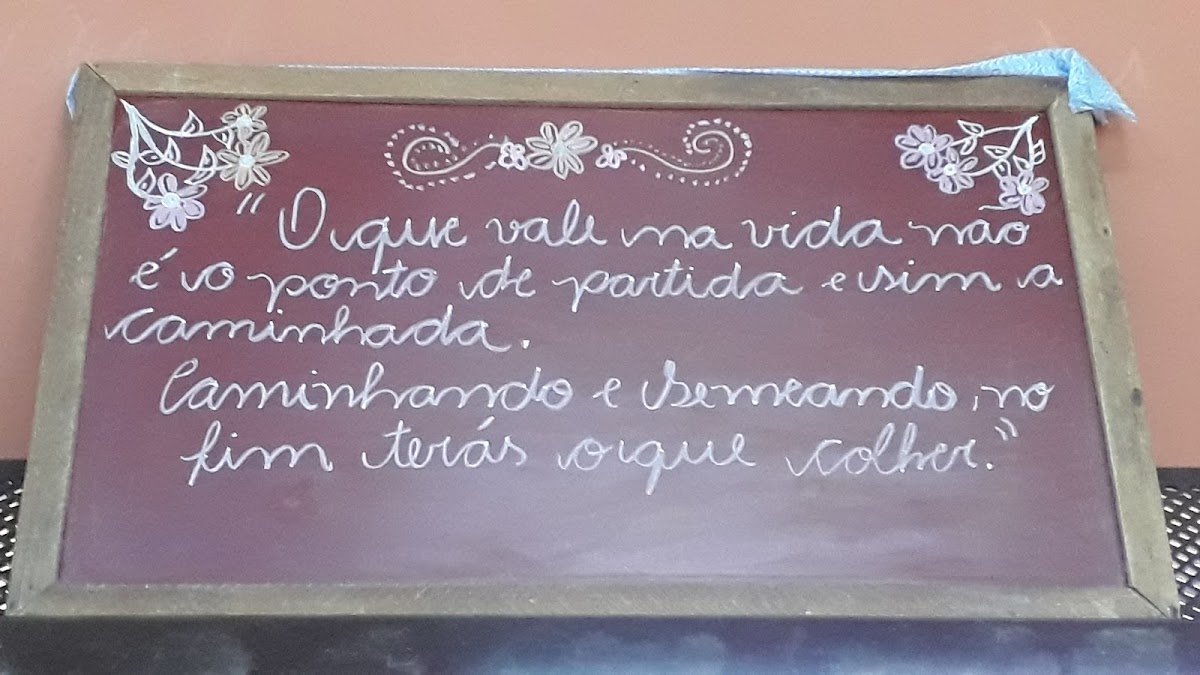 "O que vale na vida não
é o ponto de partida e sim a
caminhada.
Caminhando e semeando, no
fim terás o que colher."